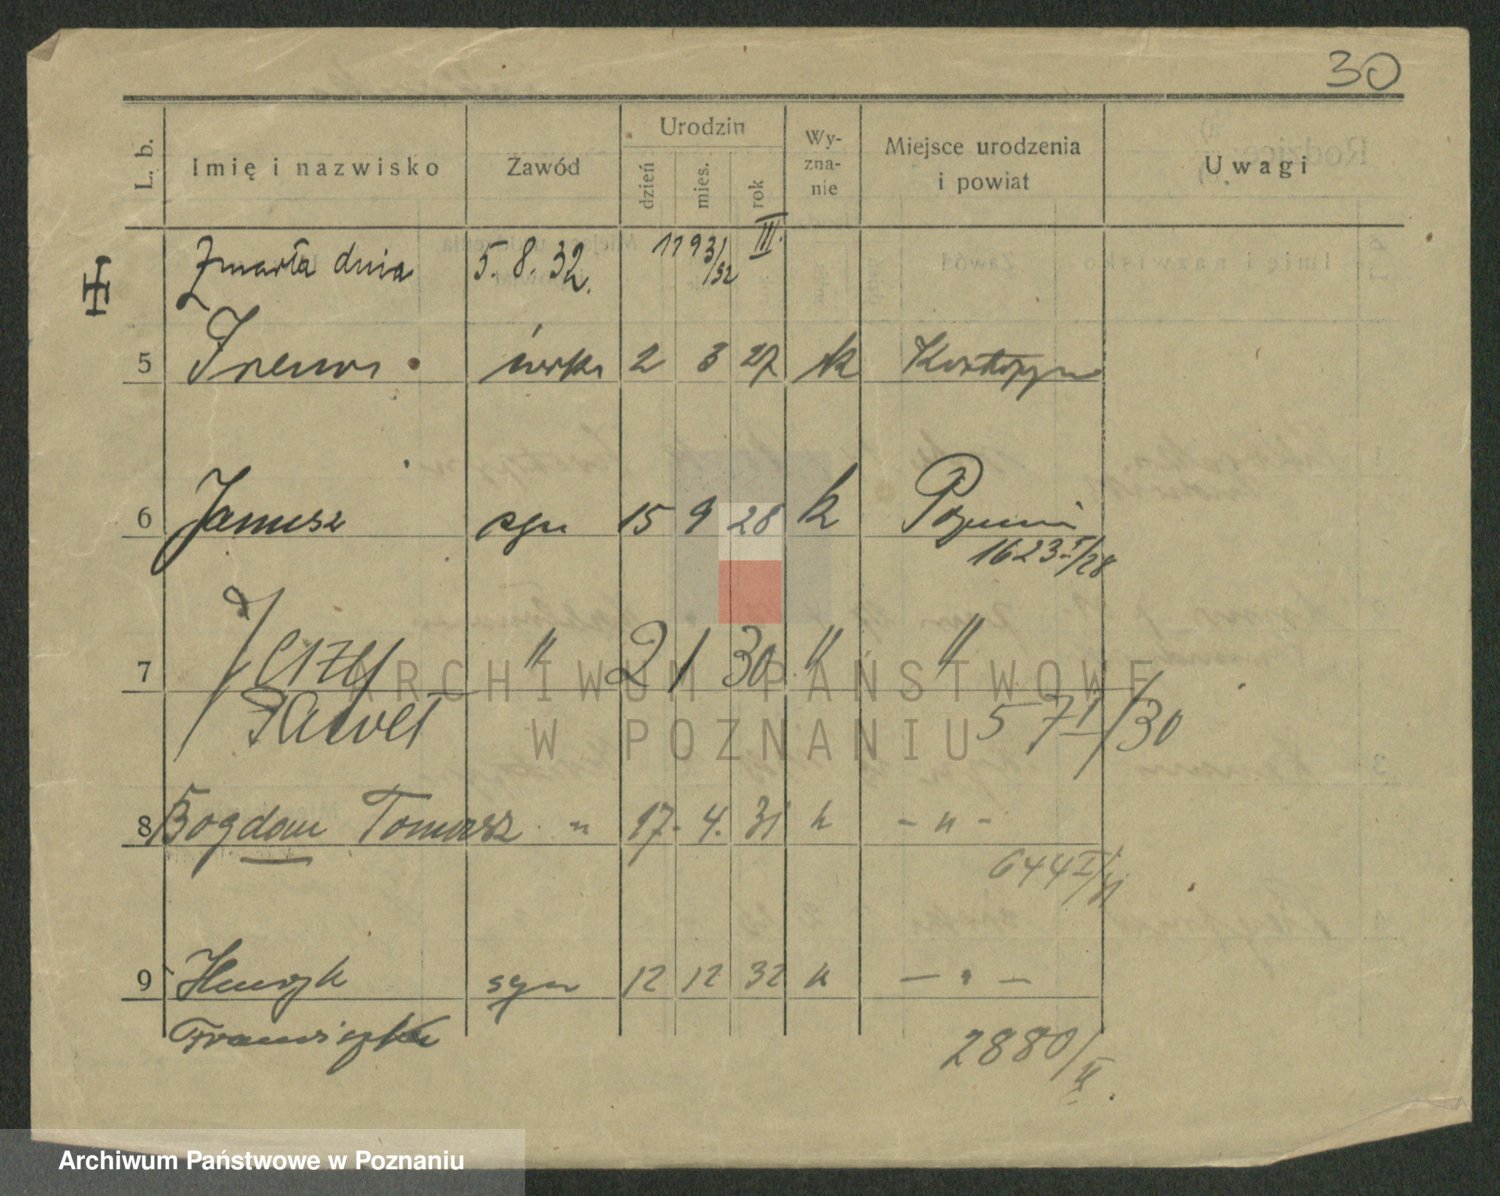 30
L. b. Imię i nazwisko Zawód Urodzin dzień mies. rok Wy-zna-nie Miejsce urodzenia i powiat Uwagi
Zmarła dnia 5. 8. 32. 1193/32 III.
5 Irena córka 2 3 27 k Kostrzyn
6 Janusz syn 15 9 28 k Poznań
1623 I/28
7 Jerzy " 2 1 30 " "
Paweł 57 I/30
8 Bogdan Tomasz " 17. 4. 31 k - " -
644 I/31
9 Henryk syn 12 12 32 k - " -
Franciszek 2880/II.
ARCHIWUM PAŃSTWOWE
W POZNANIU
Archiwum Państwowe w Poznaniu